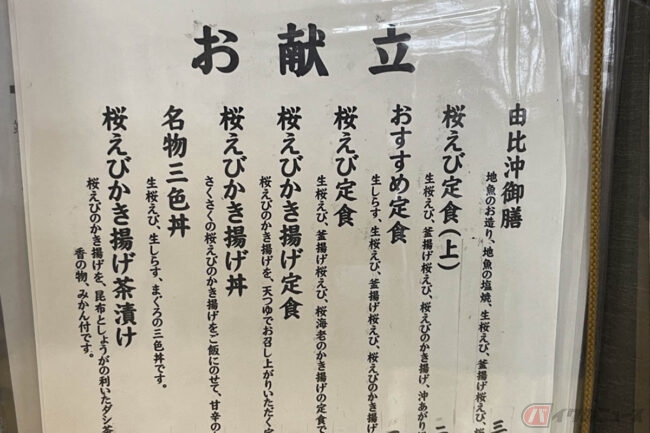 お献立
由比沖御膳
地魚のお造り、地魚の塩焼、生桜えび、釜揚げ桜えび、桜
桜えび定食(上)
生桜えび、釜揚げ桜えび、桜えびのかき揚げ、沖あがり
おすすめ定食
生しらす、生桜えび、釜揚げ桜えび、桜えびのかき揚げ
桜えび定食
生桜えび、釜揚げ桜えび、桜海老のかき揚げの定食で
桜えびかき揚げ定食
桜えびのかき揚げを、天つゆでお召し上がりいただく定
桜えびかき揚げ丼
さくさくの桜えびのかき揚げをご飯にのせて、甘辛の
名物三色丼
生桜えび、生しらす、まぐろの三色丼です。
桜えびかき揚げ茶漬け
桜えびのかき揚げを、昆布としょうがの利いたダシ茶
香の物、みかん付です。
バイクのニュース